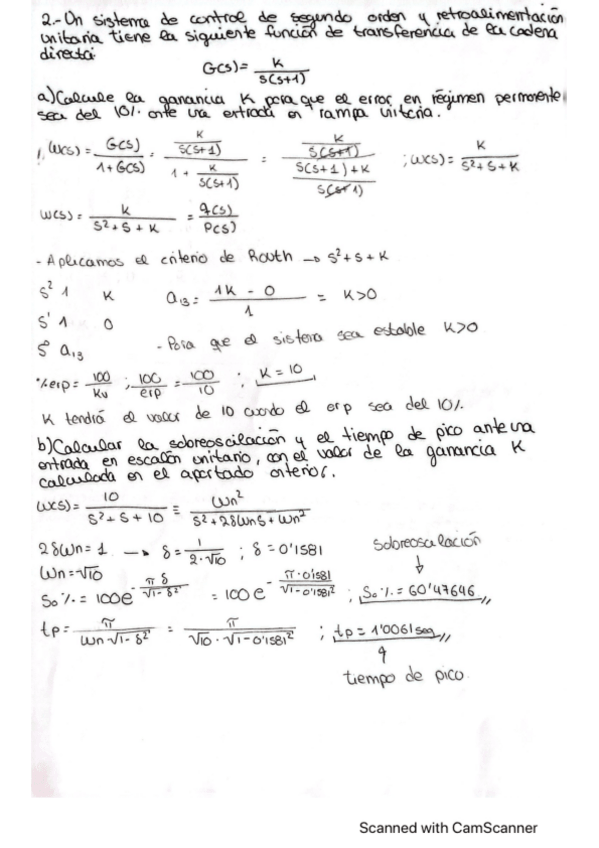 2.- Un sistema de control de segundo orden y retroalimentación
unitaria tiene la siguiente función de transferencia de la cadena
directa:
G(s) = K / S(S+1)
a) Calcule la ganancia K para que el error en régimen permanente
sea del 10% ante una entrada en rampa unitaria.
W(s) = G(s) / 1+G(s) = K / S(S+1) / 1 + K / S(S+1) = K / S(S+1) / S(S+1)+K / S(S+1) ; W(s) = K / S²+S+K
W(s) = K / S²+S+K = q(s) / P(s)
- Aplicamos el criterio de Routh → S²+S+K
S² 1 K a13 = 1K - 0 / 1 = K>0
S¹ 1 0
S⁰ a13 - Para que el sistema sea estable K>0
% erp = 100 / Kv ; 100 / erp = 100 / 10 ; K = 10
K tendrá el valor de 10 cuando el erp sea del 10%.
b) Calcular la sobreoscilación y el tiempo de pico ante una
entrada en escalón unitario, con el valor de la ganancia K
calculada en el apartado anterior.
W(s) = 10 / S²+S+10 ≡ Wn² / S²+2δWnS+Wn²
2δWn = 1 → δ = 1 / 2·√10 ; δ = 0'1581
Wn = √10
sobreosculación
↓
So% = 100e^(-πδ / √1-δ²) = 100e^(-π·0'1581 / √1-0'1581²) ; So% = 60'47646
tp = π / Wn·√1-δ² = π / √10·√1-0'1581² ; tp = 1'0061 seg
tiempo de pico
Scanned with CamScanner